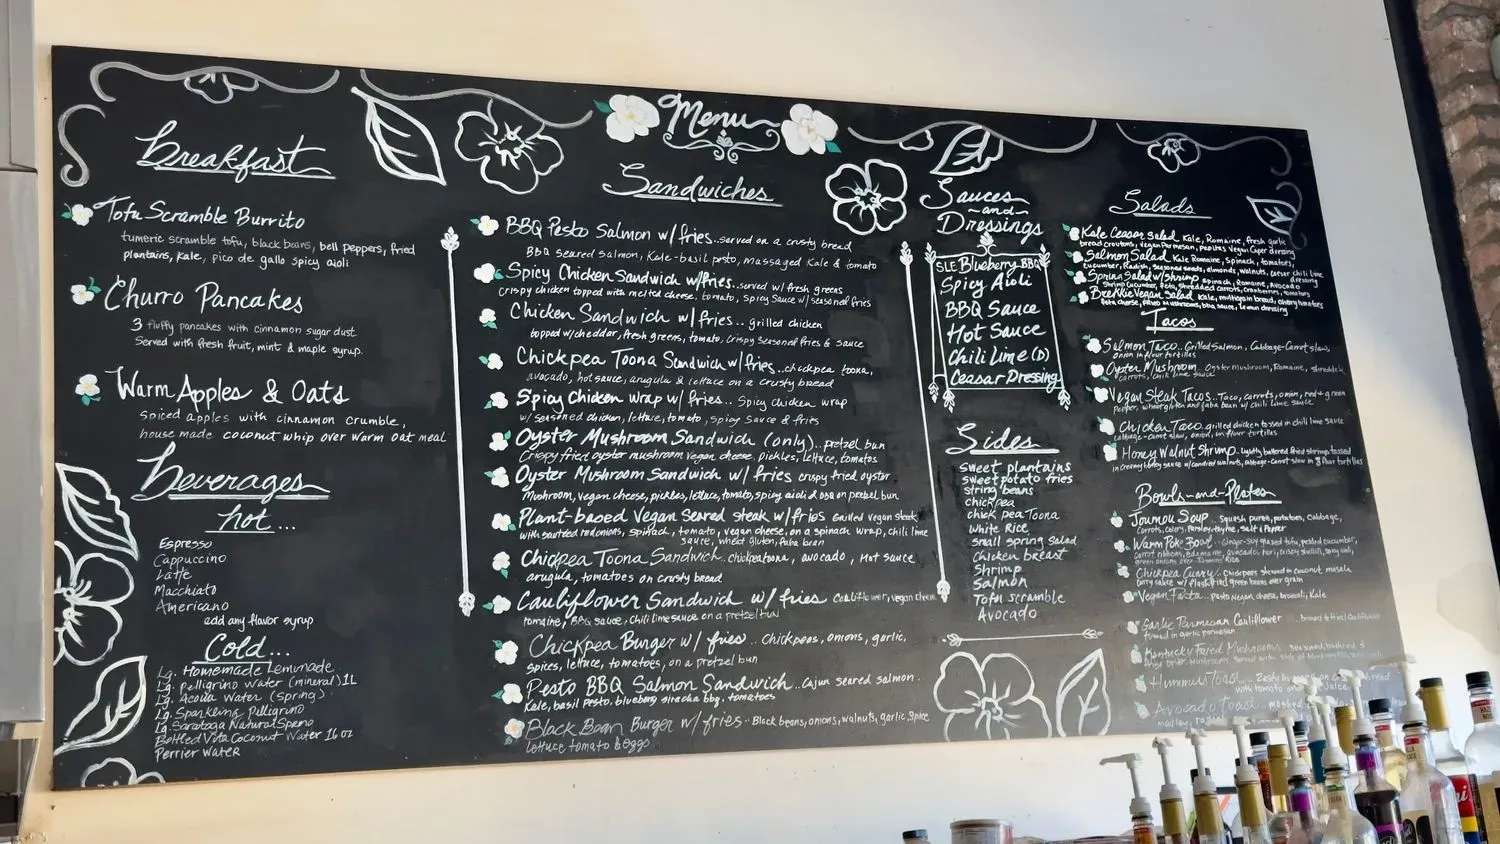 Menu
breakfast
Tofu Scramble Burrito
tumeric scramble tofu, black beans, bell peppers, fried
plantains, kale, pico de gallo spicy aioli
Churro Pancakes
3 fluffy pancakes with cinnamon sugar dust.
Served with fresh fruit, mint & maple syrup.
Warm Apples & Oats
Spiced apples with cinnamon crumble,
house made coconut whip over warm oat meal
beverages
hot...
Espresso
Cappuccino
Latte
Macchiato
Americano
add any flavor syrup
Cold...
Lg. Homemade Lemonade
Lg. Pelligrino Water (mineral) 1L
Lg. Acqua Water (spring)
Lg. Sparkling Pilligrino
Lg. Saratoga Natural Spring
Bottled Vita Coconut Water 16 oz
Perrier Water
Sandwiches
BBQ Pesto Salmon w/ fries..served on a crusty bread
BBQ seared salmon, Kale-basil pesto, massaged Kale & tomato
Spicy Chicken Sandwich w/fries..served w/ fresh greens
crispy chicken topped with melted cheese, tomato, spicy Sauce w/ seasonal fries
Chicken Sandwich w/ fries.. grilled chicken
topped w/cheddar, fresh greens, tomato, crispy seasonal fries & sauce
Chickpea Toona Sandwich w/ fries..chickpea toona,
avocado, hot sauce, arugula & lettuce on a crusty bread
Spicy Chicken Wrap w/ fries.. Spicy chicken wrap
w/ seasoned chicken, lettuce, tomato, spicy sauce & fries
Oyster Mushroom Sandwich (only)..pretzel bun
Crispy fried oyster mushroom vegan cheese, pickles, lettuce, tomatos
Oyster Mushroom Sandwich w/ fries crispy fried oyster
Mushroom, vegan cheese, pickles, lettuce, tomato, spicy aioli & BBQ on pretzel bun
Plant-based Vegan Seared steak w/fries Grilled vegan steak
with sauteed red onions, spinach, tomato, vegan cheese, on a spinach wrap, chili lime
sauce, wheat gluten, faba bean
Chicpea Toona Sandwich..chickpea toona, avocado, Hot sauce
arugula, tomatoes on crusty bread
Cauliflower Sandwich w/ fries Cauliflower, vegan cheese
tomatoe, BBQ sauce, chili lime sauce on a pretzel bun
Chickpea Burger w/ fries.. Chickpeas, onions, garlic,
spices, lettuce, tomatoes, on a pretzel bun
Pesto BBQ Salmon Sandwich..Cajun seared salmon.
Kale, basil pesto, blueberry siracha bbq, tomatoes
Black Bean Burger w/ fries.. Black beans, onions, walnuts, garlic spice
lettuce tomato & eggs
Sauces
-and-
Dressings
SLE Blueberry BBQ
Spicy Aioli
BBQ Sauce
Hot Sauce
Chili Lime (D)
Ceasar Dressing
Sides
sweet plantains
sweet potato fries
string beans
chickpea
chick pea Toona
white Rice
small spring salad
Chicken breast
Shrimp
Salmon
Tofu scramble
Avocado
Salads
Kale Ceasar Salad Kale, Romaine, fresh garlic
bread croutons, vegan Parmesan, pepitas vegan Caper dressing
Salmon Salad Kale Romaine, Spinach, tomatoes,
cucumber, Radish, seasoned seeds, almonds, walnuts, caesar chili lime
Spring Salad w/ Shrimp spinach, Romaine, Avocado
shrimp cucumber, feta, shredded carrots, cranberries, tomatoes
Brekkie Vegan Salad Kale, multigrain bread, cherry tomatoes
feta cheese, mushrooms, bbq sauce, lemon dressing
Tacos
Salmon Taco.. Grilled Salmon, Cabbage-Carrot slaw,
onion in flour tortillas
Oyster Mushroom. Oyster Mushroom, Romaine, shredded
carrots, chili lime sauce
Vegan Steak Tacos..Taco, carrots, onion, red & green
pepper, wheat gluten and faba bean w/ chili lime sauce
Chicken Taco grilled chicken tossed in chili lime sauce
cabbage-carrot slaw, onion, in flour tortillas
Honey Walnut Shrimp. lightly battered fried shrimp tossed
in creamy honey sauce w/candied walnuts, cabbage-carrot slaw in 3 flour tortillas
Bowls-and-Plates
Joumou Soup.. Squash puree, potatoes, cabbage,
Carrots, celery, Parsley, thyme, salt & Pepper
Warm Poke Bowl.. Ginger-soy glazed tofu, pickled cucumber,
carrot ribbons, Edamame, avocado, nori, crispy shallots, spicy aioli,
green onions over Jasmine Rice
Chickpea Curry.. Chickpeas stewed in coconut masala
curry sauce w/ flash fried green beans over grain
Vegan Pasta.. pasta vegan cheese, broccoli, Kale
Garlic Parmesan Cauliflower .. brined & fried Cauliflower
tossed in garlic parmesan
Kentucky Fried Mushrooms Seasoned, battered &
fried oyster Mushrooms, served with side of
Hummus Toast.. Zesty bread
with tomato Juice
Avocado Toast.. mashed
medley,